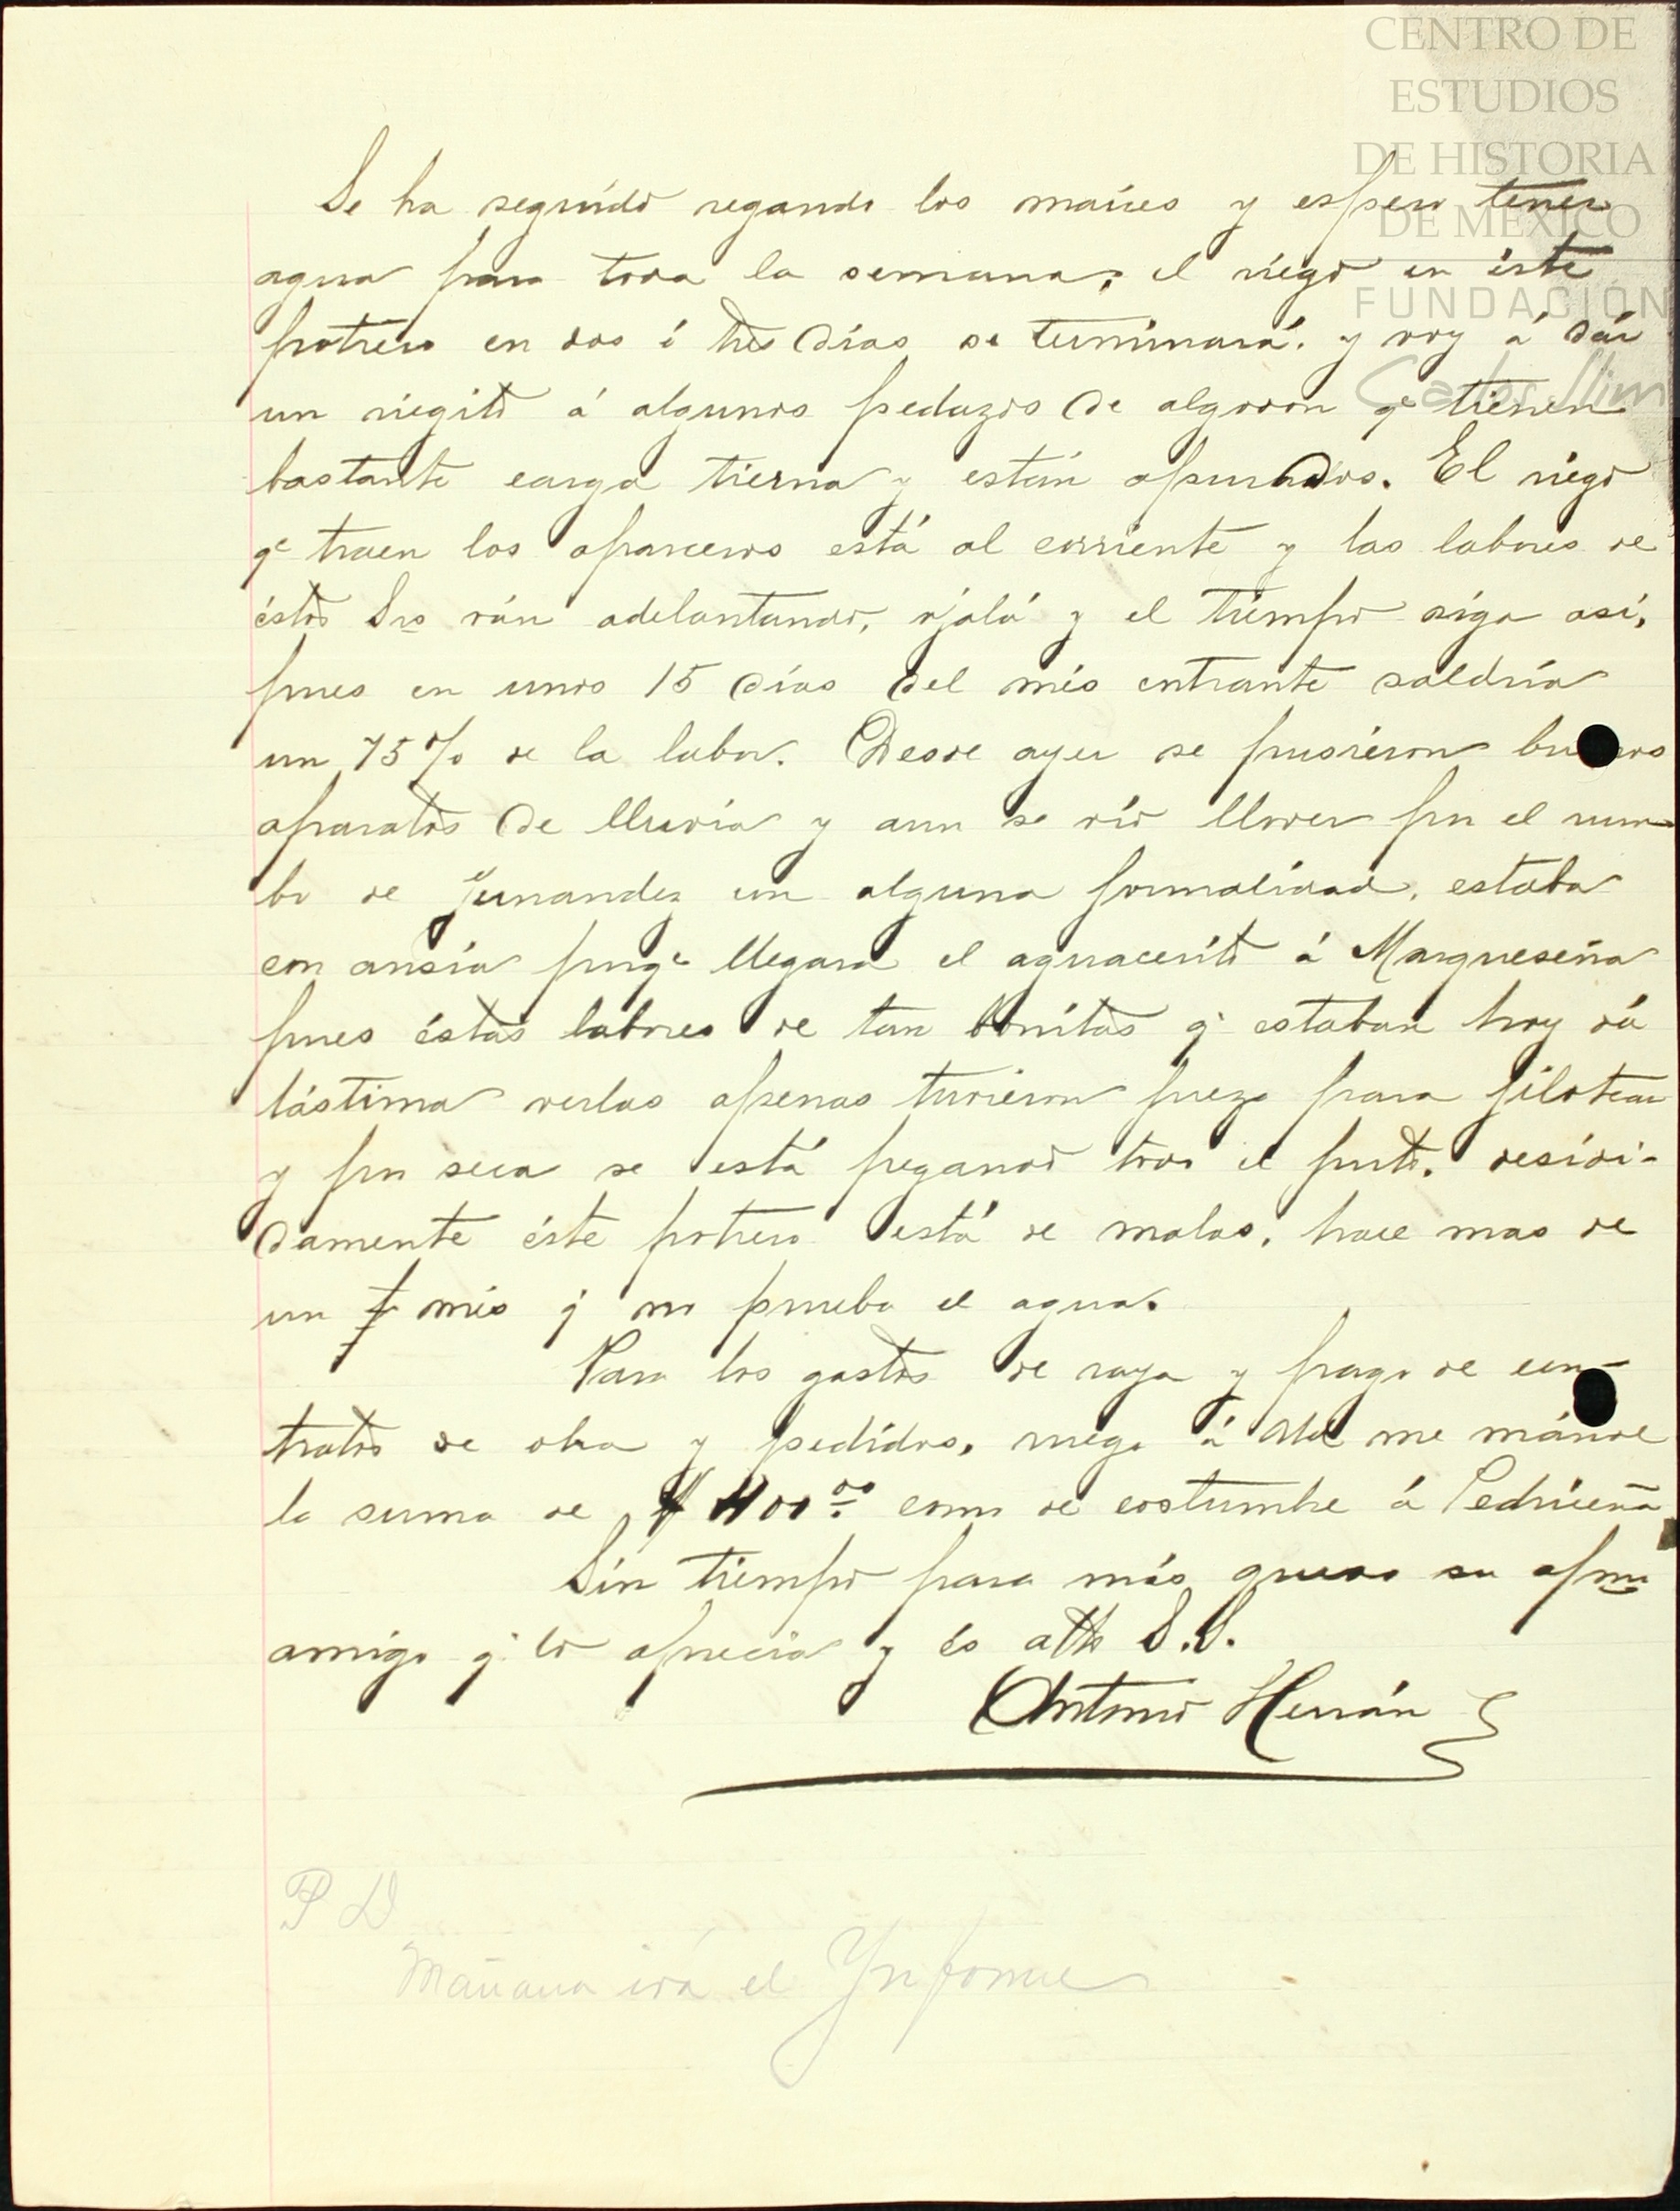 CENTRO DE
ESTUDIOS
DE HISTORIA
DE MÉXICO
FUNDACIÓN
Carlos Slim
Se ha seguído regando los maíces y espero tener
agua para toda la semana; el riego en éste
potrero en dos ó tres días se terminará. y voy á dár
un rieguito á algunos pedazos de algodon qe tienen
bastante carga tierna y están apurados. El riego
qe traen los aparceros está al corriente y las labores de
éstos Srs ván adelantando, ojalá y el tiempo siga así,
pues en unos 15 días del més entrante saldría
un 75% de la labor. Desde ayer se pusieron buenos
aparatos de lluvia y aun se vió llover por el rum-
bo de Fernandez con alguna formalidad, estaba
con ansia porqe llegara el aguacerito á Marqueseña
pues éstas labores de tan bonitas q. estaban hoy dá
lástima verlas apenas tuvieron fuerza para jilotear
y por seca se está pegando todo el fruto. desidi-
damente éste potrero está de malas, hace mas de
un més q. no prueba el agua.
Para los gastos de raya y pago de con-
tratos de obra y pedidos, ruego á Ud me mánde
la suma de $400.oo como de costumbre á Pedriceña
Sin tiempo para más quedo su afmo
amigo q. lo aprecia y és atto S.S.
Antonio Herrán
P D
Mañana irá el Ynforme